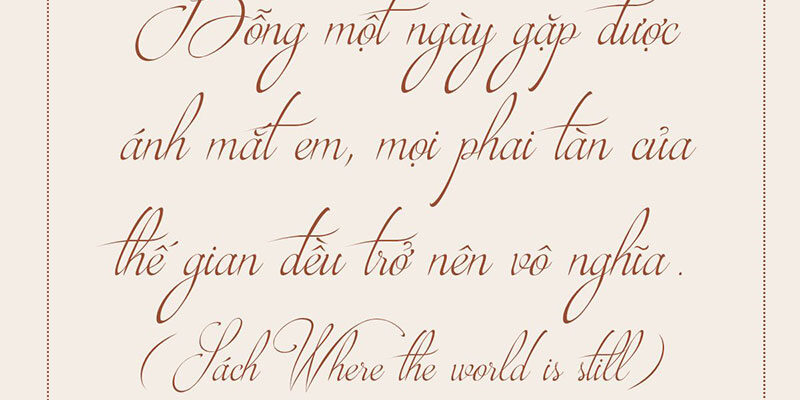 Bỗng một ngày gặp được
ánh mắt em, mọi phai tàn của
thế gian đều trở nên vô nghĩa.
(Sách Where the world is still)